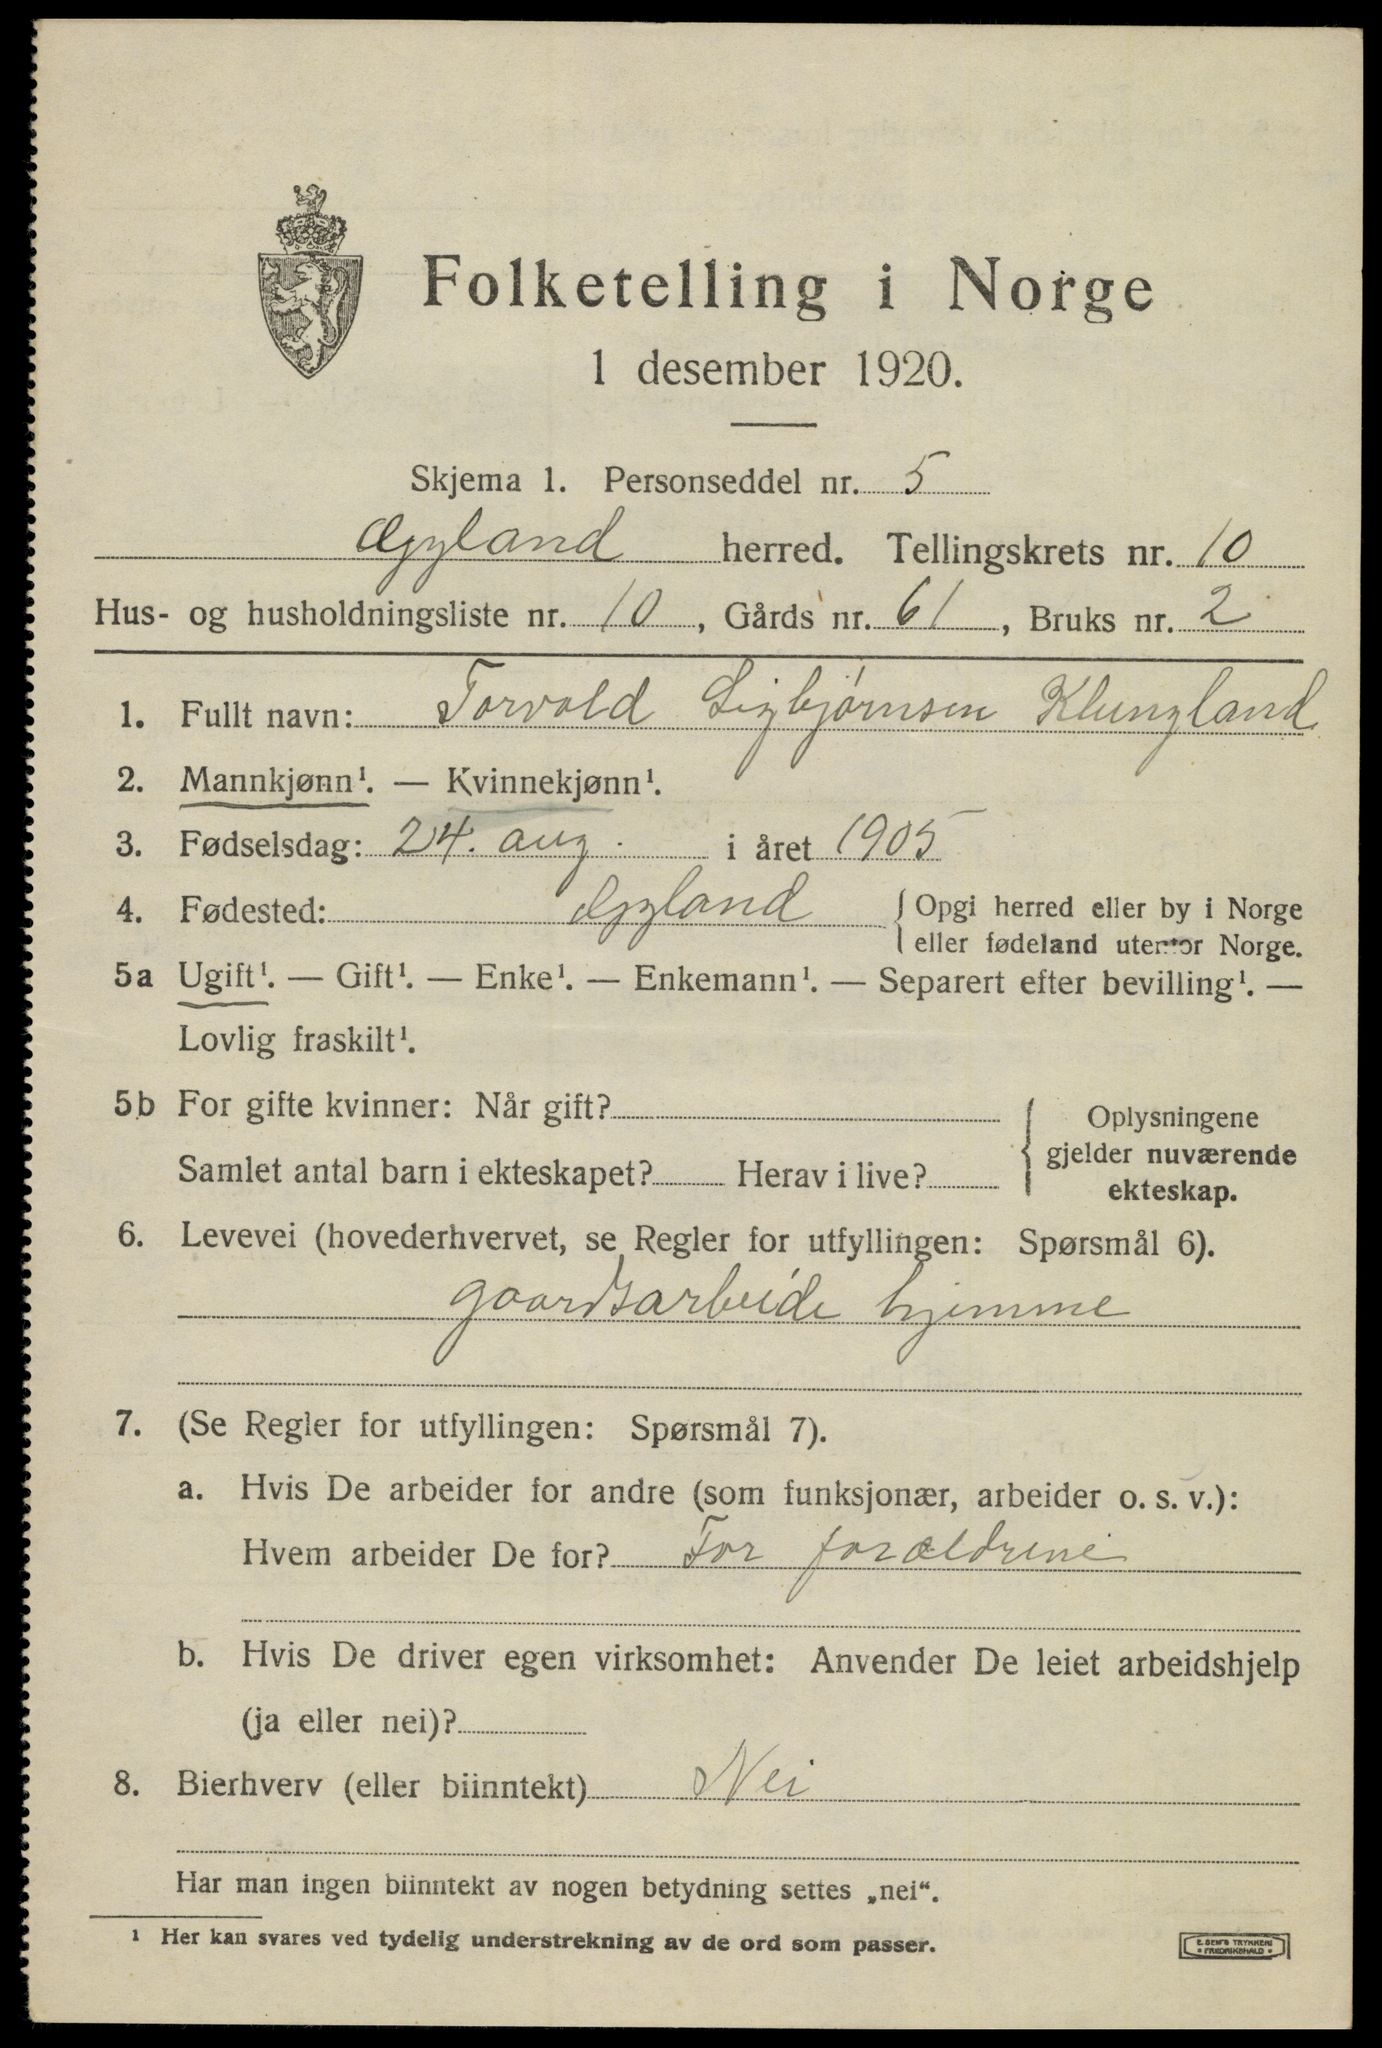 Folketelling i Norge
1 desember 1920.
Skjema 1. Personseddel nr. 5
Øyland herred. Tellingskrets nr. 10
Hus- og husholdningsliste nr. 10, Gårds nr. 61, Bruks nr. 2
1. Fullt navn: Torvald Sigbjørnsen Klungland
2. Mannkjønn¹. — Kvinnekjønn¹.
3. Fødselsdag: 24. aug. i året 1905
4. Fødested: {Opgi herred eller by i Norge
eller fødeland utenfor Norge.
5a Ugift¹. — Gift¹. — Enke¹. — Enkemann¹. — Separert efter bevilling¹. —
Lovlig fraskilt¹.
5b For gifte kvinner: Når gift? Oplysningene
gjelder nuværende
Samlet antal barn i ekteskapet? Herav i live? ekteskap.
6. Levevei (hovederhvervet, se Regler for utfyllingen: Spørsmål 6).
gaardsarbeide hjemme
7. (Se Regler for utfyllingen: Spørsmål 7).
a. Hvis De arbeider for andre (som funksjonær, arbeider o. s. v.):
Hvem arbeider De for? For forældrene
b. Hvis De driver egen virksomhet: Anvender De leiet arbeidshjelp
(ja eller nei)?
8. Bierhverv (eller biinntekt) Nei
Har man ingen biinntekt av nogen betydning settes „nei“.
¹ Her kan svares ved tydelig understrekning av de ord som passer.
E. SEM'S TRYKKERI
FREDRIKSHALD